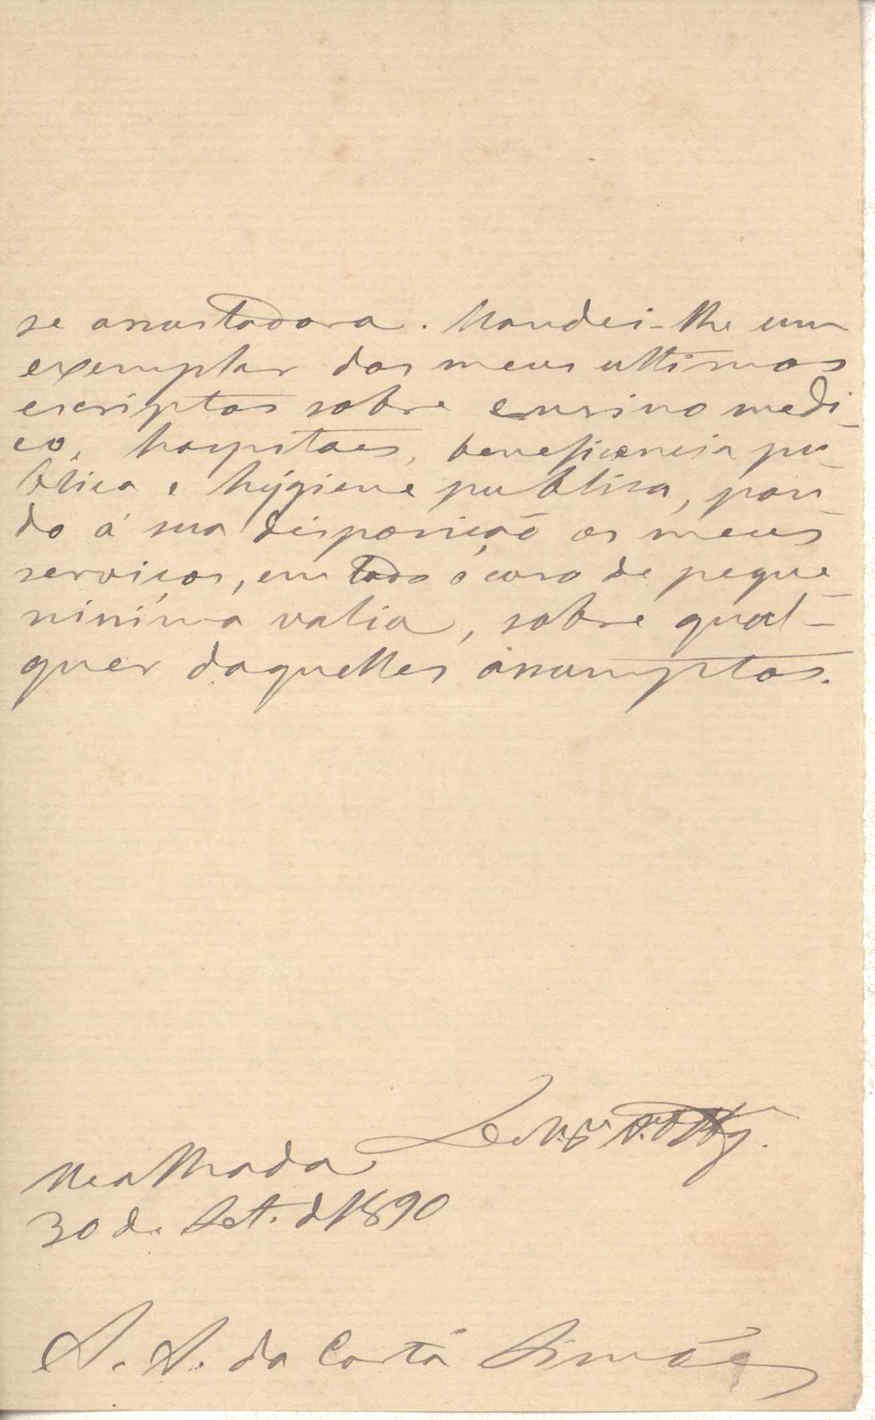 se assustadora. Mandei-lhe um
exemplar dos meus ultimos
escriptos sobre ensino medi-
co, hospitaes, beneficencia pu-
blica e hygiene publica, pon-
do á sua disposição os meus
serviços, em todo o caso de peque-
ninima valia, sobre qual-
quer daquelles assumptos.
De V. Exª
Mealhada
30 de Set. d 1890
A. A. da Costa Simões